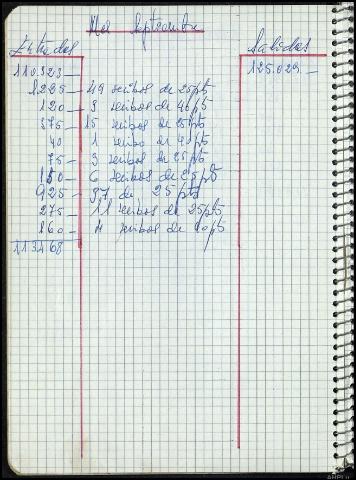 Mes Septiembre
Entradas Salidas
110.323 125.029
1225 49 recibos de 25 pts
120 3 recibos de 40 pts
375 15 recibos de 25 pts
40 1 recibo de 40 pts
75 3 recibos de 25 pts
150 6 recibos de 25 pts
925 37 de 25 pts
275 11 recibos de 25 pts
160 4 recibos de 40 pts
113468